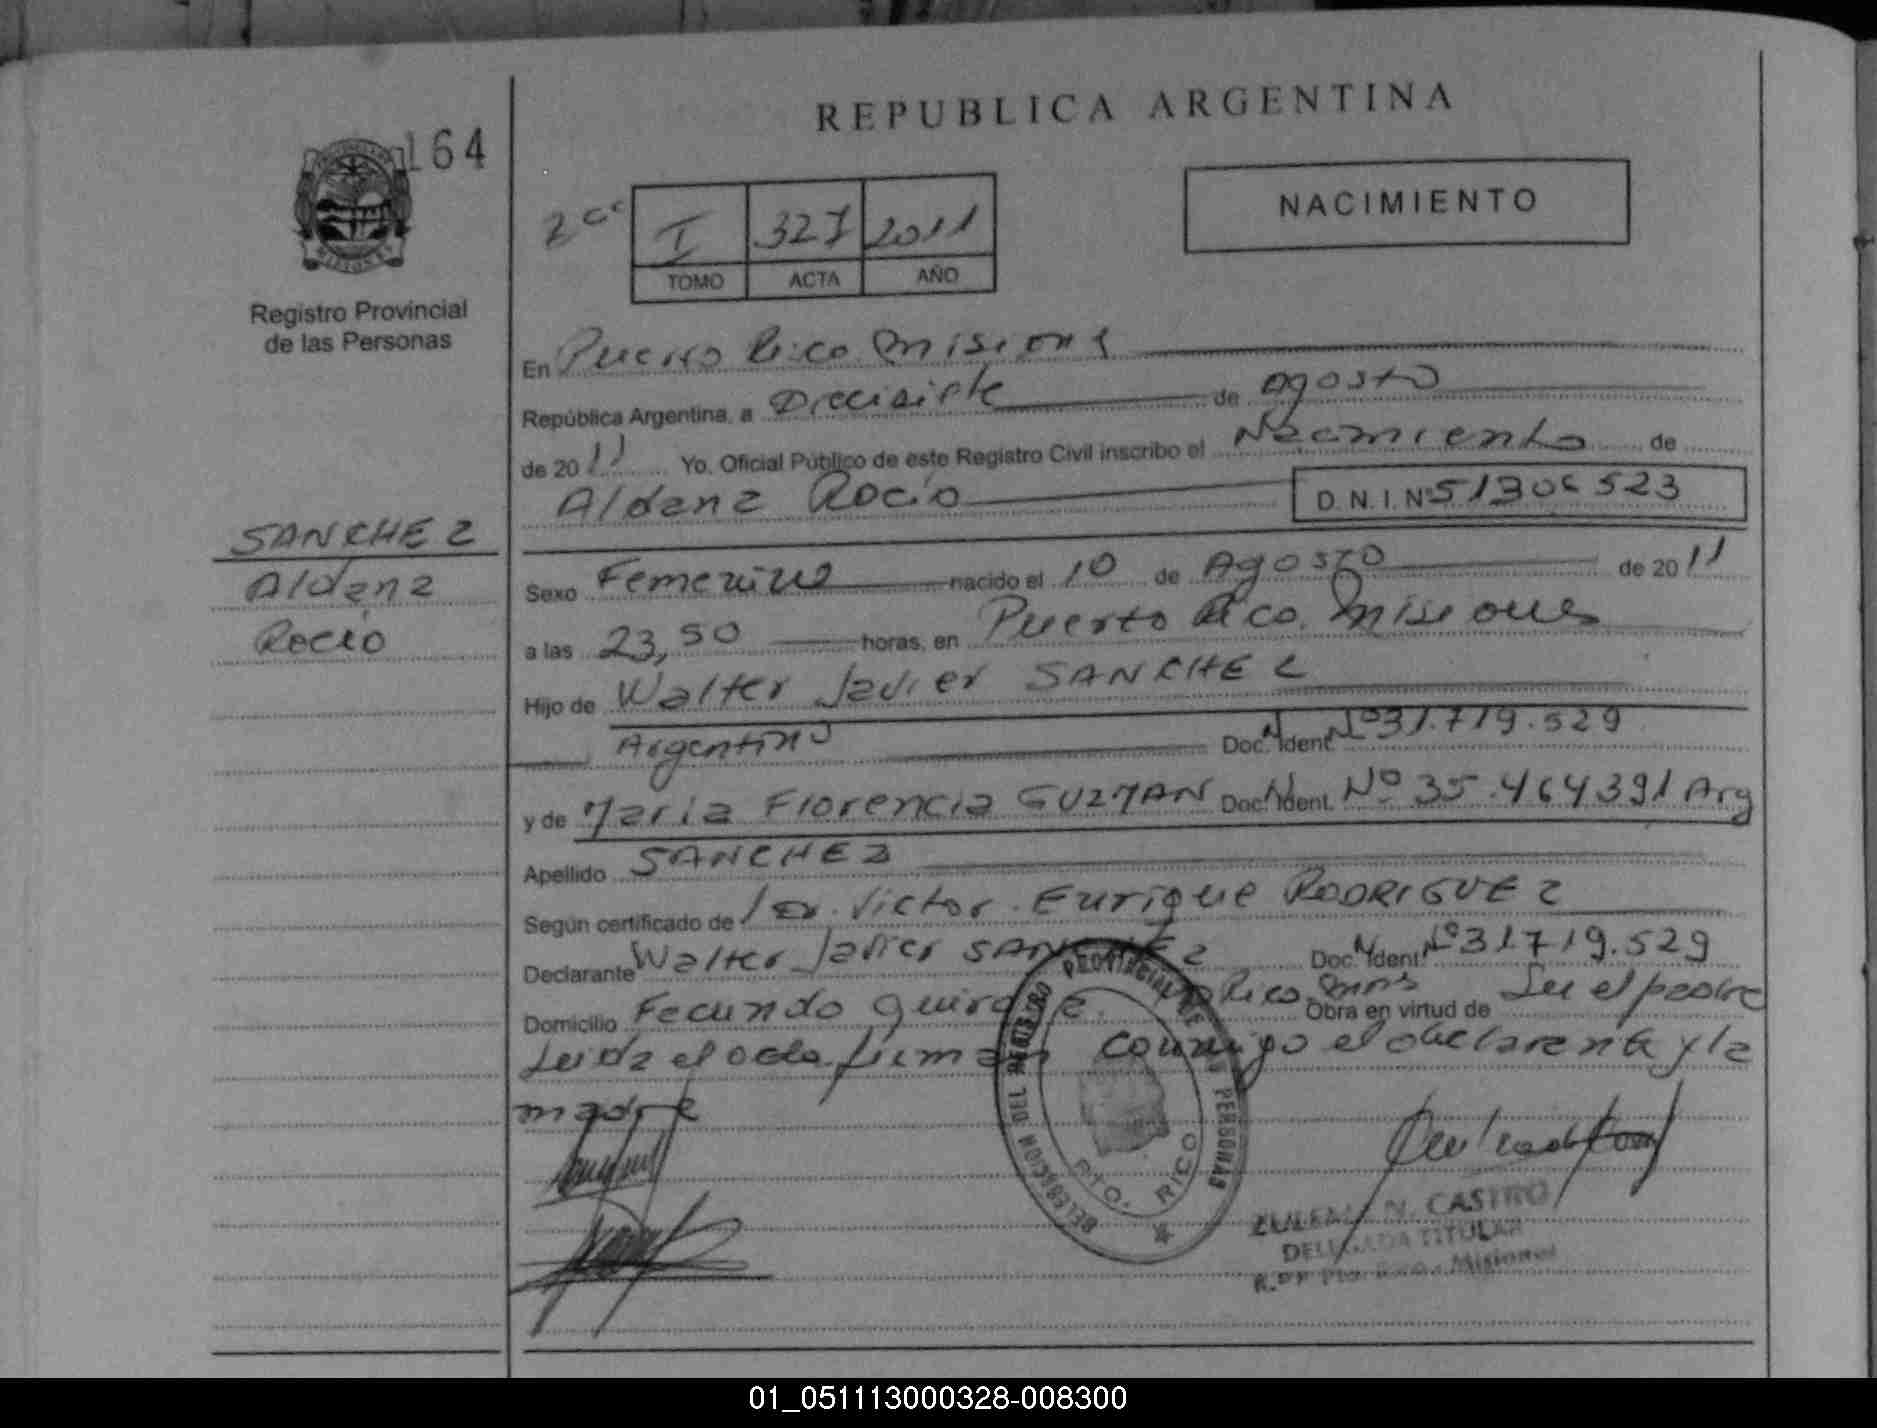 REPUBLICA ARGENTINA
164
NACIMIENTO
I 327 2011
TOMO ACTA AÑO
MISIONES
Registro Provincial
de las Personas
En Puerto Rico Misiones
República Argentina, a Diecisiete de agosto
de 2011 Yo, Oficial Público de este Registro Civil inscribo el Nacimiento de
Aldana Rocio D.N.I. Nº 51306523
SANCHEZ
Aldana
Rocio
Sexo Femenino nacido el 10 de Agosto de 2011
a las 23,50 horas, en Puerto Rico Misiones
Hijo de Walter Javier SANCHEZ
Argentino Doc. Ident. Nº 31.719.529
y de Maria Florencia GUZMAN Doc. Ident. Nº 35.464391 Arg
Apellido SANCHEZ
Según certificado de Victor Enrique RODRIGUEZ
Declarante Walter Javier SANCHEZ Doc. Ident. Nº 31719.529
Domicilio Facundo Rico Obra en virtud de Ser el padre
Leida el acta firman conmigo el declarante y la
madre
DELEGACION DEL REGISTRO PROVINCIAL DE PERSONAS
PTO. RICO
N. CASTRO
DELEGADA TITULAR
Misiones
01_051113000328-008300